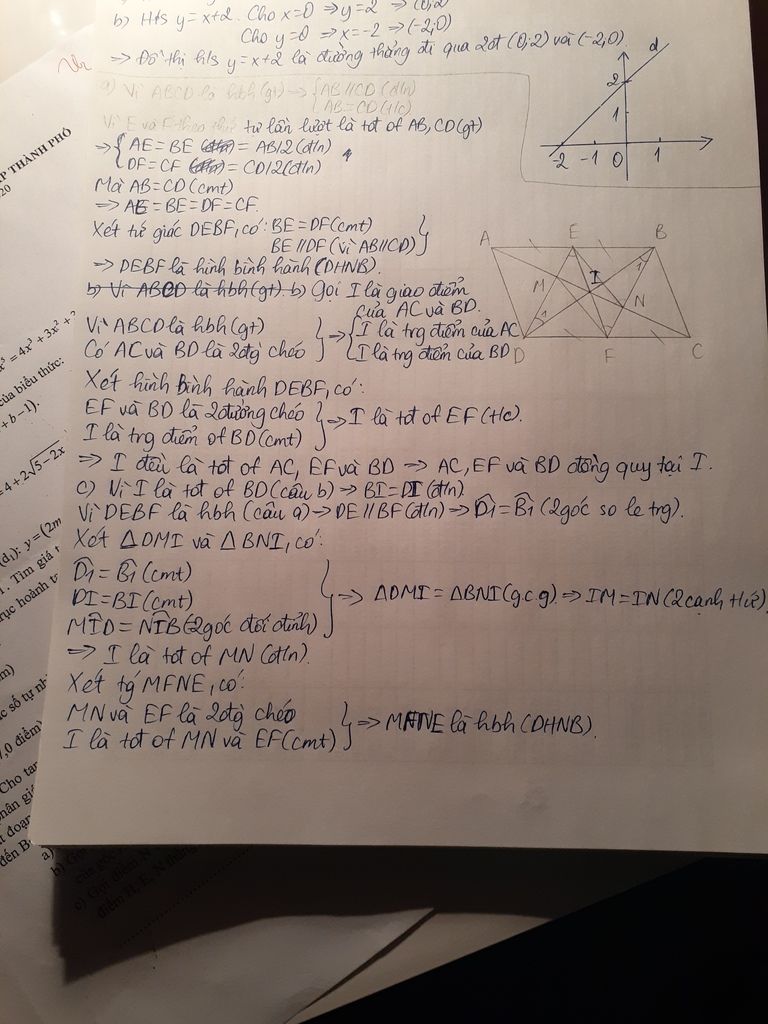 b) H/s y = x+2. Cho x=0 ⇒ y=2 ⇒ (0;2)
Cho y=0 ⇒ x=-2 ⇒ (-2;0)
⇒ Đồ thị h/s y = x+2 là đường thẳng đi qua 2đt (0;2) và (-2;0)
d
2
1
-2 -1 0 1
a) Vì ABCD là hbh (gt) ⇒ { AB//CD (đ/n)
AB=CD (t/c)
Vì E và F theo thứ tự lần lượt là tđt of AB, CD (gt)
⇒ { AE = BE = AB/2 (đ/n)
DF = CF = CD/2 (đ/n)
Mà AB=CD (cmt)
⇒ AE = BE = DF = CF.
Xét tứ giác DEBF, có: BE = DF (cmt)
BE // DF (vì AB//CD) }
⇒ DEBF là hình bình hành (DHNB).
b) Vì ABCD là hbh (gt) b) Gọi I là giao điểm
của AC và BD.
Vì ABCD là hbh (gt)
Có AC và BD là 2đg chéo } ⇒ { I là trg điểm của AC
I là trg điểm của BD
A E B
M I 1 N
1
D F C
Xét hình bình hành DEBF, có:
EF và BD là 2đường chéo
I là trg điểm of BD (cmt) } ⇒ I là tđt of EF (t/c).
⇒ I đều là tđt of AC, EF và BD ⇒ AC, EF và BD đồng quy tại I.
c) Vì I là tđt of BD (câu b) ⇒ BI = DI (đ/n)
Vì DEBF là hbh (câu a) ⇒ DE // BF (đ/n) ⇒ D̂1 = B̂1 (2góc so le trg).
Xét ΔDMI và ΔBNI, có:
D̂1 = B̂1 (cmt)
DI = BI (cmt)
MÎD = NÎB (2góc đối đỉnh) } ⇒ ΔDMI = ΔBNI (g.c.g) ⇒ IM = IN (2cạnh t/ứ)
⇒ I là tđt of MN (đ/n).
Xét tg MFNE, có:
MN và EF là 2đg chéo
I là tđt of MN và EF (cmt) } ⇒ MFNE là hbh (DHNB).
THÀNH PHỐ
20
= 4x³ + 3x² +
của biểu thức:
+ b − 1).
= 4 + 2√5−2x
(d₁): y = (2m
. Tìm giá t
rục hoành t
m)
c số tự nh
,0 điểm)
Cho ta
đoạn
đến B
a)
b)
c) Gọi điểm N
điểm B, E, N thẳng